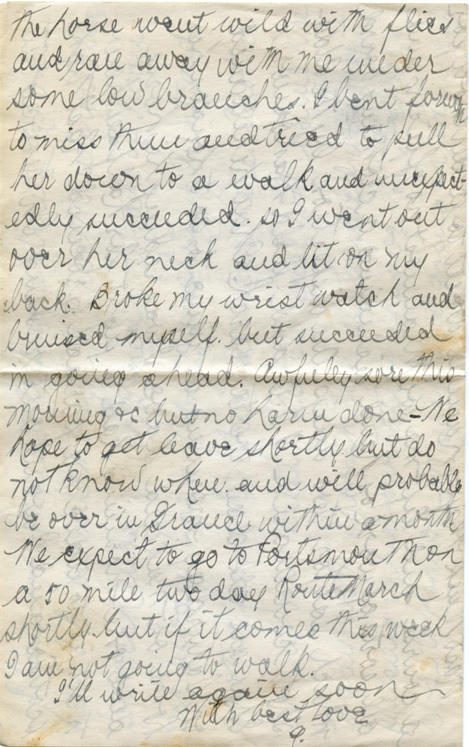 the horse went wild with flies
and ran away with me under
some low branches. I bent forw
to miss them and tried to pull
her down to a walk and unexpect-
edly succeeded. so I went out
over her neck and lit on my
back. Broke my wrist watch and
bruised myself. but succeeded
in going ahead. Awfuley sore this
morning &c but no harm done - We
hope to get leave shortly but do
not know when. and will probable
be over in France within a month
We expect to go to Portsmouth on
a 50 mile two day Route March
shortly but if it comes this week
I am not going to walk.
I'll write again soon
With best love